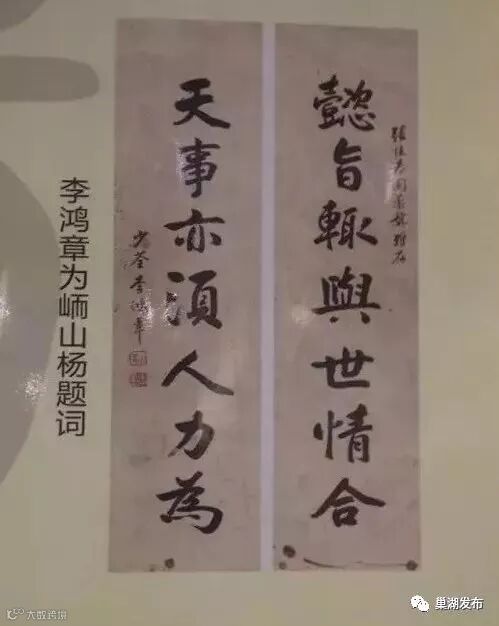 懿旨輒與世情合
天事亦須人力為
少荃李鴻章
李鸿章为山杨题词
大数跨境
巢湖发布